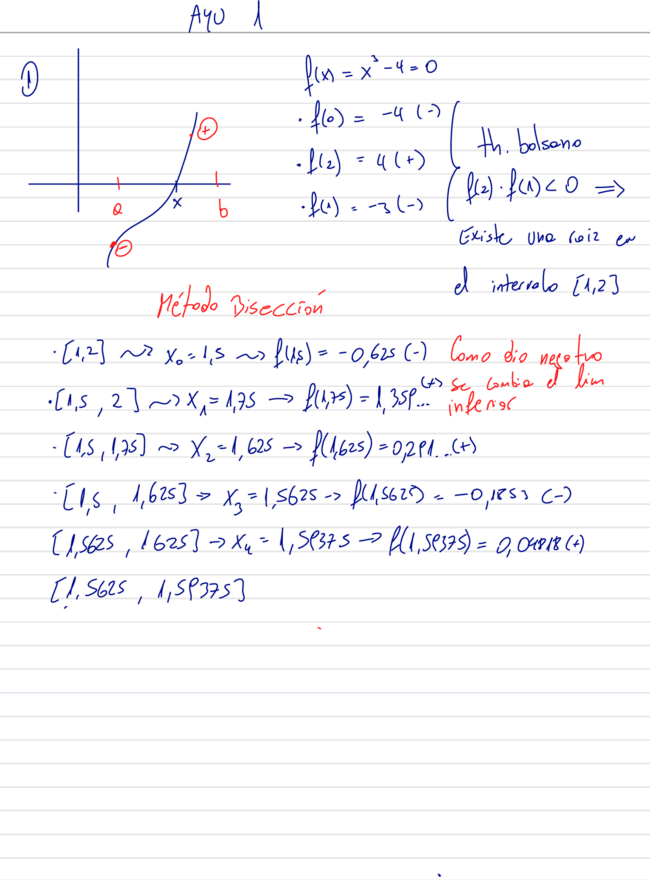 AYU 1
1)
f(x) = x³ - 4 = 0
· f(0) = -4 (-)
· f(2) = 4 (+)
· f(1) = -3 (-)
th. bolsano
f(2) · f(1) < 0 ⇒
Existe una raiz en
el intervalo [1,2]
+
a x b
-
Método Bisección
· [1,2] ⇝ x₀ = 1,5 ⇝ f(1,5) = -0,625 (-) Como dio negativo
· [1,5 , 2] ⇝ x₁ = 1,75 → f(1,75) = 1,359... (+) se cambia el lim
inferior
· [1,5 , 1,75] ⇝ x₂ = 1,625 → f(1,625) = 0,291... (+)
· [1,5 , 1,625] → x₃ = 1,5625 → f(1,5625) = -0,1853 (-)
[1,5625 , 1625] → x₄ = 1,59375 → f(1,59375) = 0,04818 (+)
[1,5625 , 1,59375]